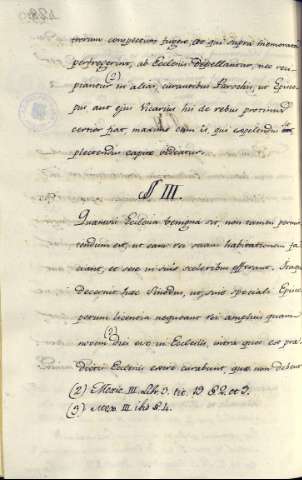 trorum conspectum fugere, et qui supra memorata
perfregerint, ab Ecclesiis depellantur, nec reci
piantur in alias, curantibus Parochis, ut Episco
pus aut ejus Vicarius hii de rebus protinus
cernor fiat, maxime cum is, qui expelendus
plectendus capite videatur.
§ III.
Quamvis Ecclesia benigna sit, non tamen permit
tendum est, ut eam rei suam habitationem fa
ciant, et sese in suis sceleribus efferant. Itaque
decernit haec Sinodus, ut, sine speciali Episco
porum licentia nequeant rei amplius quam
novem dies esse in Ecclesiis, intra quos
ab Ecclesiis exire curabunt, quae non debent
(2) Mexic. III. Lib. 3. tit. 19 § 2. et 3.
(3) Mex. III. ibi § 4.